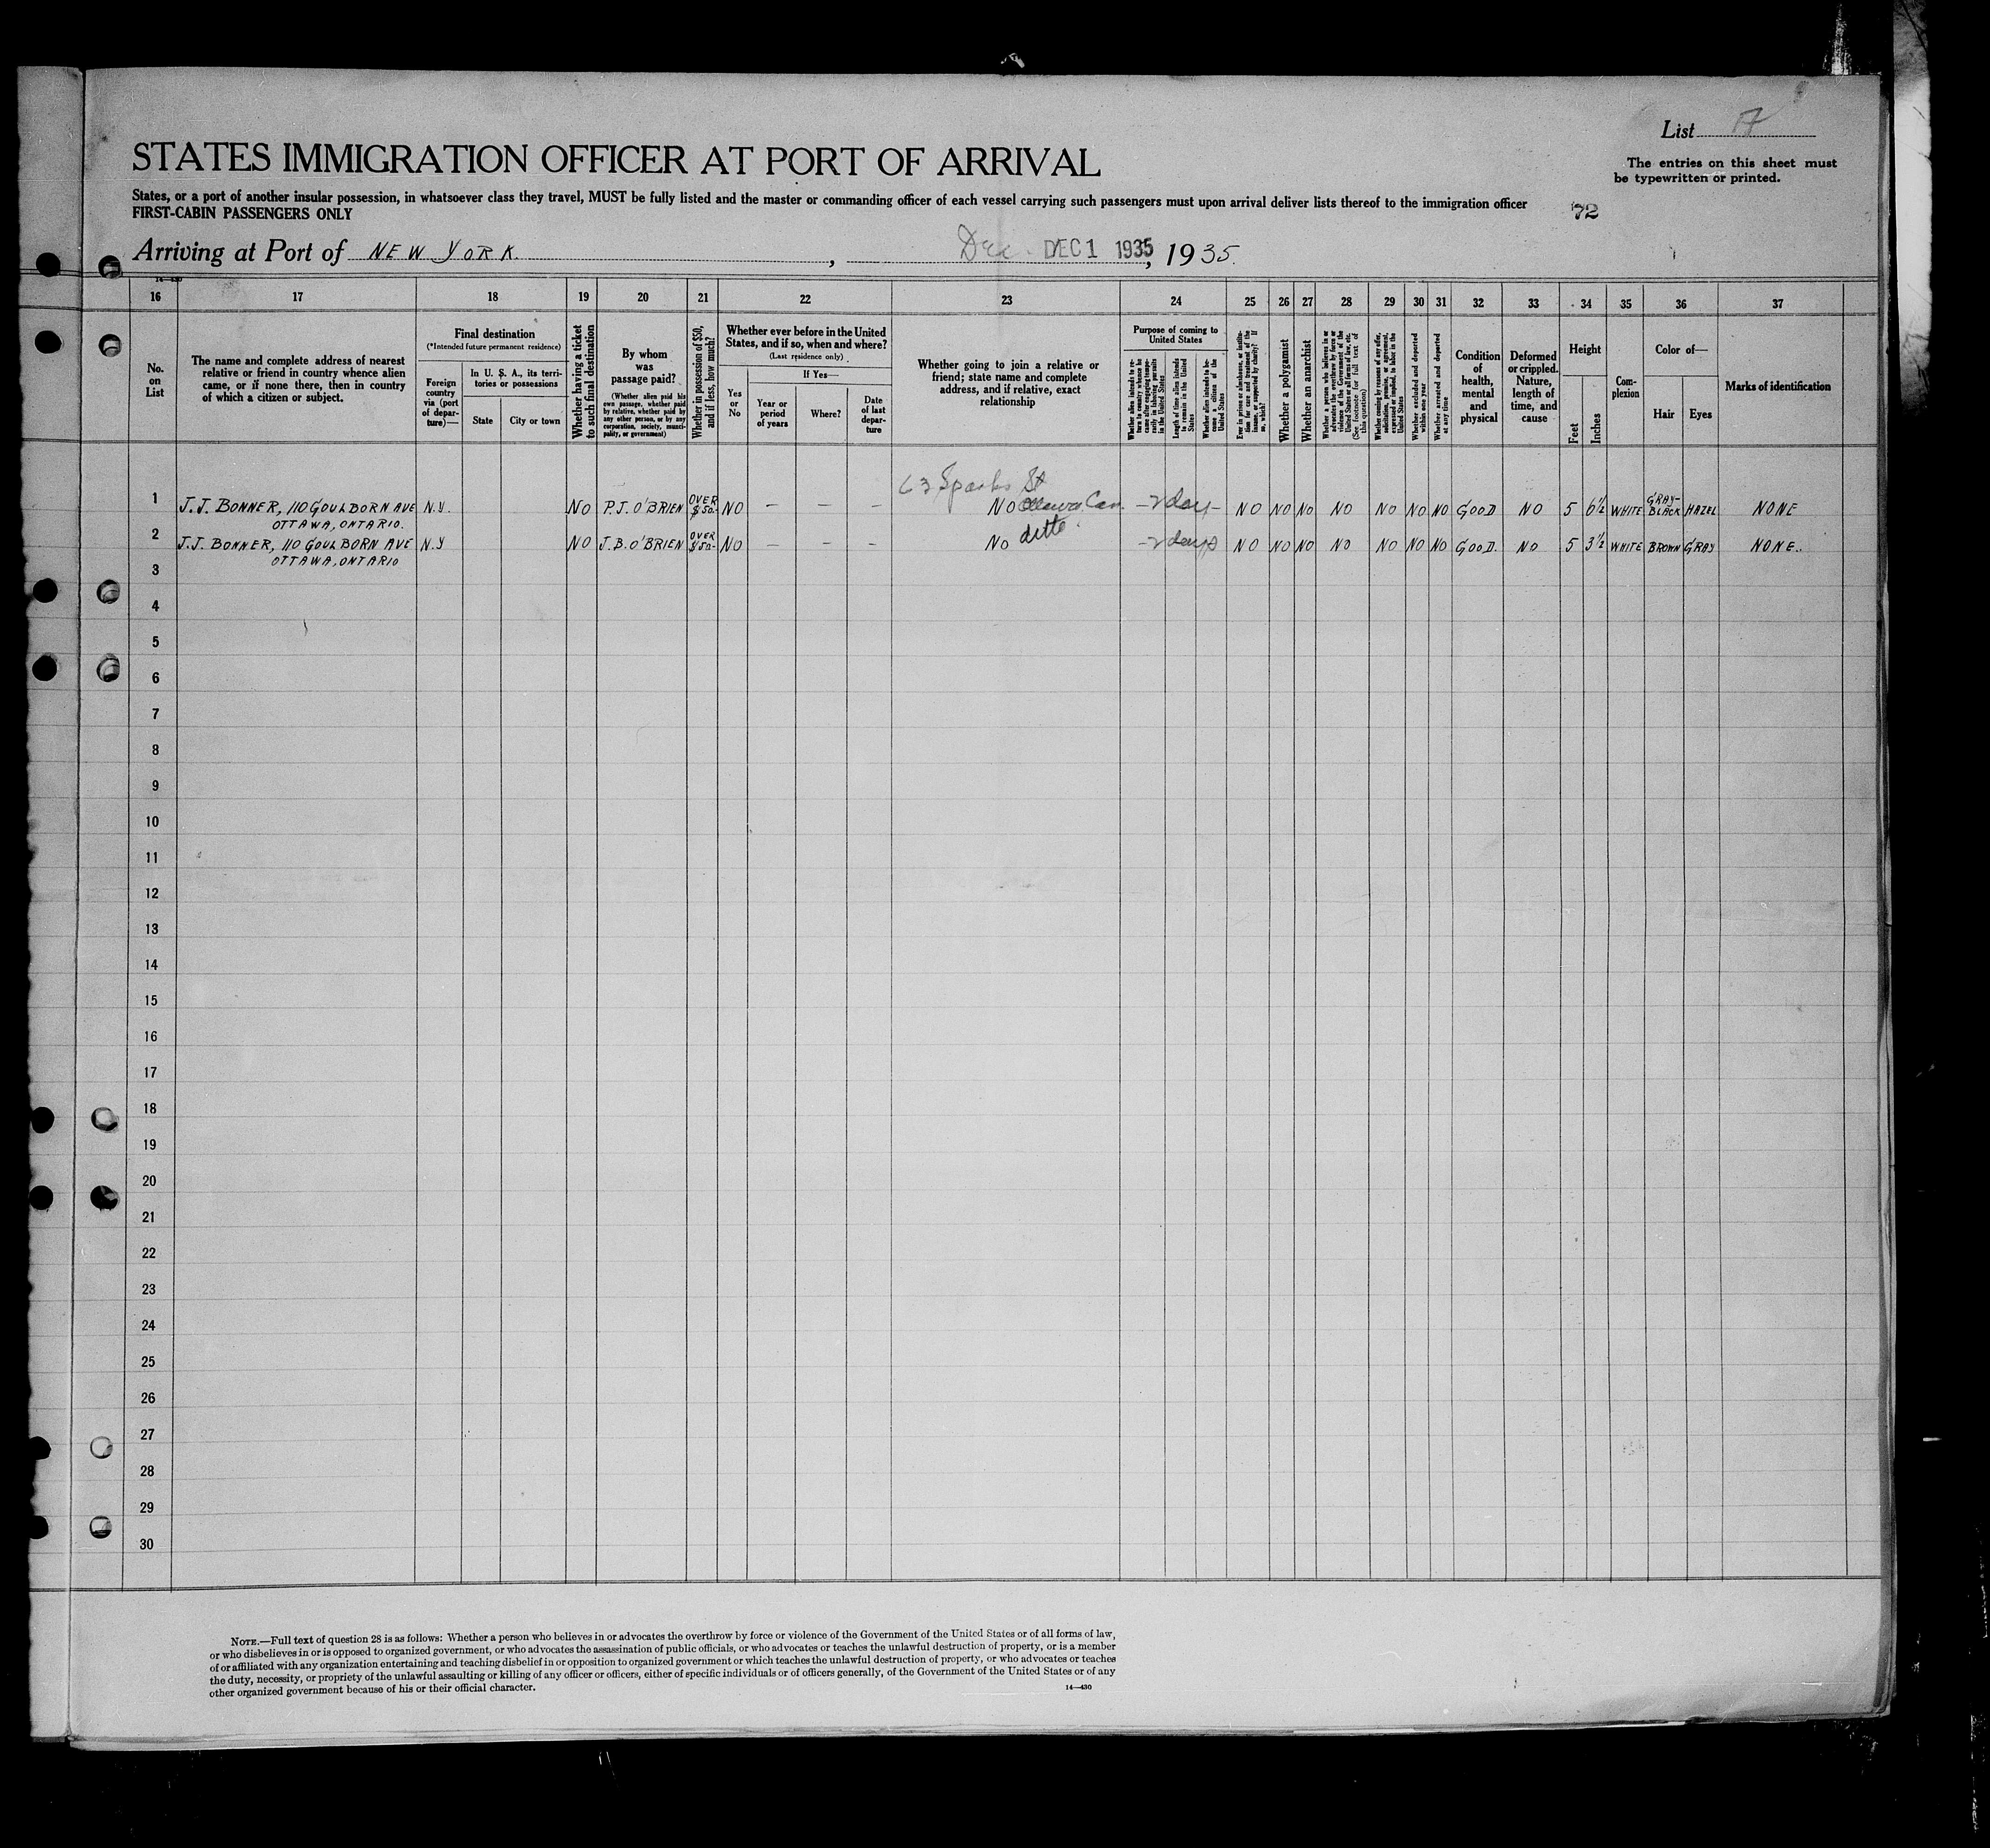 List 17
STATES IMMIGRATION OFFICER AT PORT OF ARRIVAL
The entries on this sheet must
be typewritten or printed.
States, or a port of another insular possession, in whatsoever class they travel, MUST be fully listed and the master or commanding officer of each vessel carrying such passengers must upon arrival deliver lists thereof to the immigration officer
FIRST-CABIN PASSENGERS ONLY
72
Arriving at Port of NEW YORK, Dec. DEC 1 1935, 1935.
14-430
16 17 18 19 20 21 22 23 24 25 26 27 28 29 30 31 32 33 34 35 36 37
No.
on
List
The name and complete address of nearest
relative or friend in country whence alien
came, or if none there, then in country
of which a citizen or subject.
Final destination
(*Intended future permanent residence)
Foreign
country
via (port
of depar-
ture)—
In U. S. A., its terri-
tories or possessions
State
City or town
Whether having a ticket
to such final destination
By whom
was
passage paid?
(Whether alien paid his
own passage, whether paid
by relative, whether paid by
any other person, or by any
corporation, society, munici-
pality, or government)
Whether in possession of $50,
and if less, how much?
Whether ever before in the United
States, and if so, when and where?
(Last residence only)
Yes
or
No
If Yes—
Year or
period
of years
Where?
Date
of last
depar-
ture
Whether going to join a relative or
friend; state name and complete
address, and if relative, exact
relationship
Purpose of coming to
United States
Whether alien intends to re-
turn to country whence he
came after engaging tempo-
rarily in laboring pursuits
in the United States
Length of time alien intends
to remain in the United
States
Whether alien intends to be-
come a citizen of the
United States
Ever in prison or almshouse, or institu-
tion for care and treatment of the
insane, or supported by charity? If
so, which?
Whether a polygamist
Whether an anarchist
Whether a person who believes in or
advocates the overthrow by force or
violence of the Government of the
United States or all forms of law, etc.
(See footnote for full text of
this question)
Whether coming by reason of any offer,
solicitation, promise, or agreement,
expressed or implied, to labor in the
United States
Whether excluded and deported
within one year
Whether arrested and deported
at any time
Condition
of
health,
mental
and
physical
Deformed
or crippled.
Nature,
length of
time, and
cause
Height
Feet
Inches
Com-
plexion
Color of—
Hair
Eyes
Marks of identification
63 Sparks St
1 J.J. BONNER, 110 GOULBORN AVE N.Y. NO P.J. O'BRIEN OVER $50- NO — — — NO Ottawa Can. — 2 day— NO NO NO NO NO NO NO GOOD NO 5 6½ WHITE GRAY-BLACK HAZEL NONE
OTTAWA, ONTARIO.
ditto
2 J.J. BONNER, 110 GOULBORN AVE N.Y NO J.B. O'BRIEN OVER $50- NO — — — NO — 2 days NO NO NO NO NO NO NO GOOD. NO 5 3½ WHITE BROWN GRAY NONE.
OTTAWA, ONTARIO
3
4
5
6
7
8
9
10
11
12
13
14
15
16
17
18
19
20
21
22
23
24
25
26
27
28
29
30
NOTE.—Full text of question 28 is as follows: Whether a person who believes in or advocates the overthrow by force or violence of the Government of the United States or of all forms of law,
or who disbelieves in or is opposed to organized government, or who advocates the assassination of public officials, or who advocates or teaches the unlawful destruction of property, or is a member
of or affiliated with any organization entertaining and teaching disbelief in or opposition to organized government or which teaches the unlawful destruction of property, or who advocates or teaches
the duty, necessity, or propriety of the unlawful assaulting or killing of any officer or officers, either of specific individuals or of officers generally, of the Government of the United States or of any
other organized government because of his or their official character.
14—430